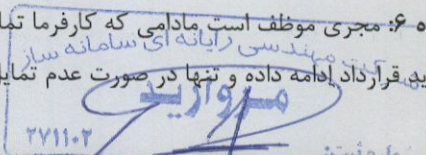 ه ۶: مجری موظف است مادامی که کارفرما تما
مهندسی رایانه ای سامانه ساز
ید قرارداد ادامه داده و تنها در صورت عدم تمای
مروارید
۲۷۱۱۰۲